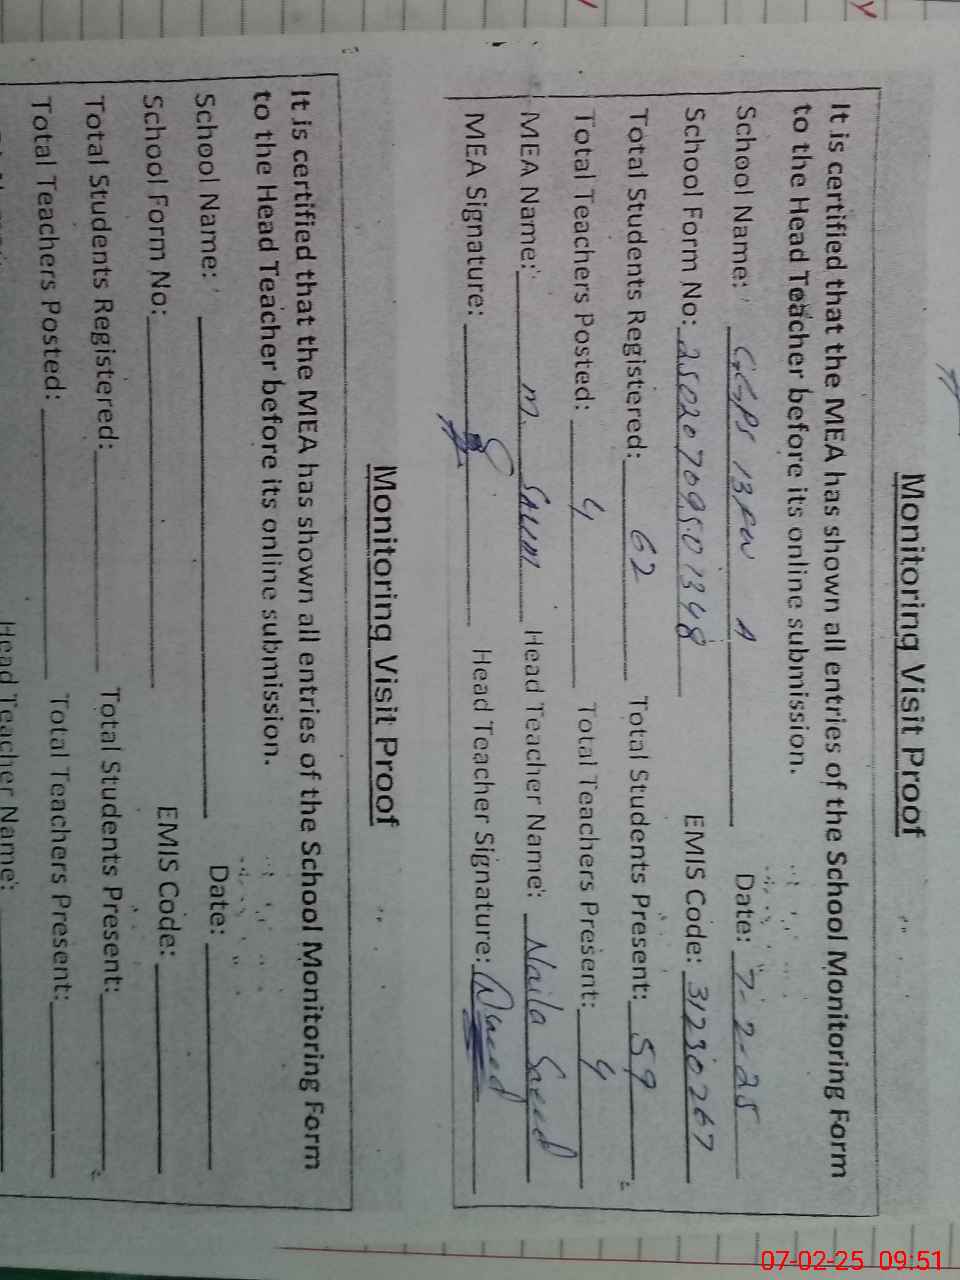 Monitoring Visit Proof
It is certified that the MEA has shown all entries of the School Monitoring Form
to the Head Teacher before its online submission.
School Name: GGPS 13 FW A Date: 7-2-25
School Form No: 25020709501348 EMIS Code: 31230267
Total Students Registered: 62 Total Students Present: 59
Total Teachers Posted: 4 Total Teachers Present: 4
MEA Name: M. Head Teacher Name: Naila Saeed
MEA Signature: Head Teacher Signature:
Monitoring Visit Proof
It is certified that the MEA has shown all entries of the School Monitoring Form
to the Head Teacher before its online submission.
School Name: Date:
School Form No: EMIS Code:
Total Students Registered: Total Students Present:
Total Teachers Posted: Total Teachers Present:
Head Teacher Name:
07-02-25 09:51